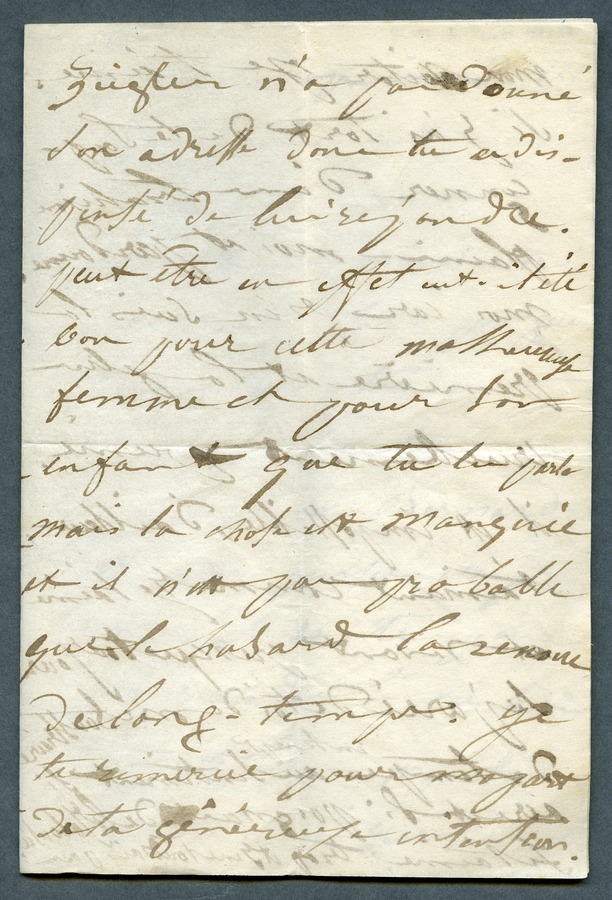 Ziegler n'a pas donné
son adresse donc tu es dis-
pensé de lui répondre.
peut être en effet eut-il été
bon pour cette malheureuse
femme et pour son
enfant que tu lui parles
mais la chose est manquée
et il n'est pas probable
que le hasard la renoue
de long-temps. je
te remercie pour ma part
de ta généreuse intention.